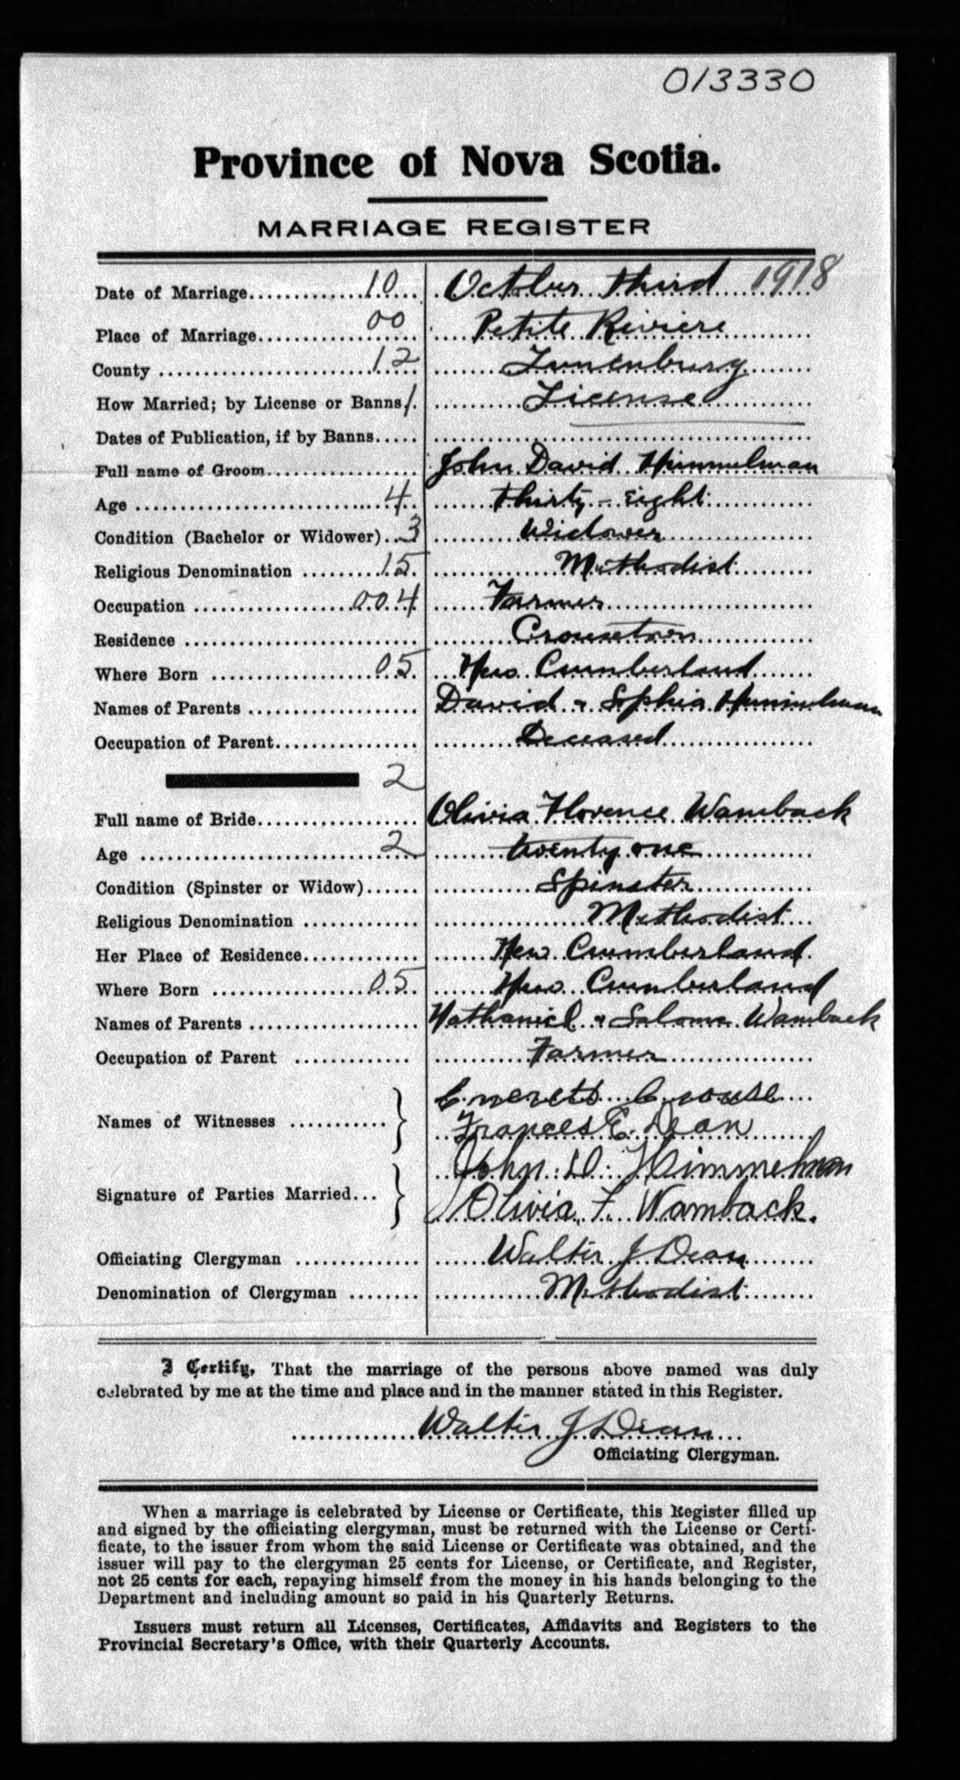 013330
Province of Nova Scotia.
MARRIAGE REGISTER
Date of Marriage 10 October third 1918
Place of Marriage 00 Petite Riviere
County 12 Lunenburg
How Married; by License or Banns 1 License
Dates of Publication, if by Banns
Full name of Groom John David Himmelman
Age 4 thirty-eight
Condition (Bachelor or Widower) 3 Widower
Religious Denomination 15 Methodist
Occupation 004 Farmer
Residence Crousetown
Where Born 05 New Cumberland
Names of Parents David & Sophia Himmelman
Occupation of Parent Deceased
2
Full name of Bride Olivia Florence Wamback
Age 2 twenty one
Condition (Spinster or Widow) Spinster
Religious Denomination Methodist
Her Place of Residence New Cumberland
Where Born 05 New Cumberland
Names of Parents Nathaniel & Saloma Wamback
Occupation of Parent Farmer
Names of Witnesses Everett Crouse
Frances E. Dean
Signature of Parties Married John D. Himmelman
Olivia F. Wamback.
Officiating Clergyman Walter J Dean
Denomination of Clergyman Methodist
I Certify, That the marriage of the persons above named was duly
celebrated by me at the time and place and in the manner stated in this Register.
Walter J Dean
Officiating Clergyman.
When a marriage is celebrated by License or Certificate, this Register filled up
and signed by the officiating clergyman, must be returned with the License or Certi-
ficate, to the issuer from whom the said License or Certificate was obtained, and the
issuer will pay to the clergyman 25 cents for License, or Certificate, and Register,
not 25 cents for each, repaying himself from the money in his hands belonging to the
Department and including amount so paid in his Quarterly Returns.
Issuers must return all Licenses, Certificates, Affidavits and Registers to the
Provincial Secretary's Office, with their Quarterly Accounts.